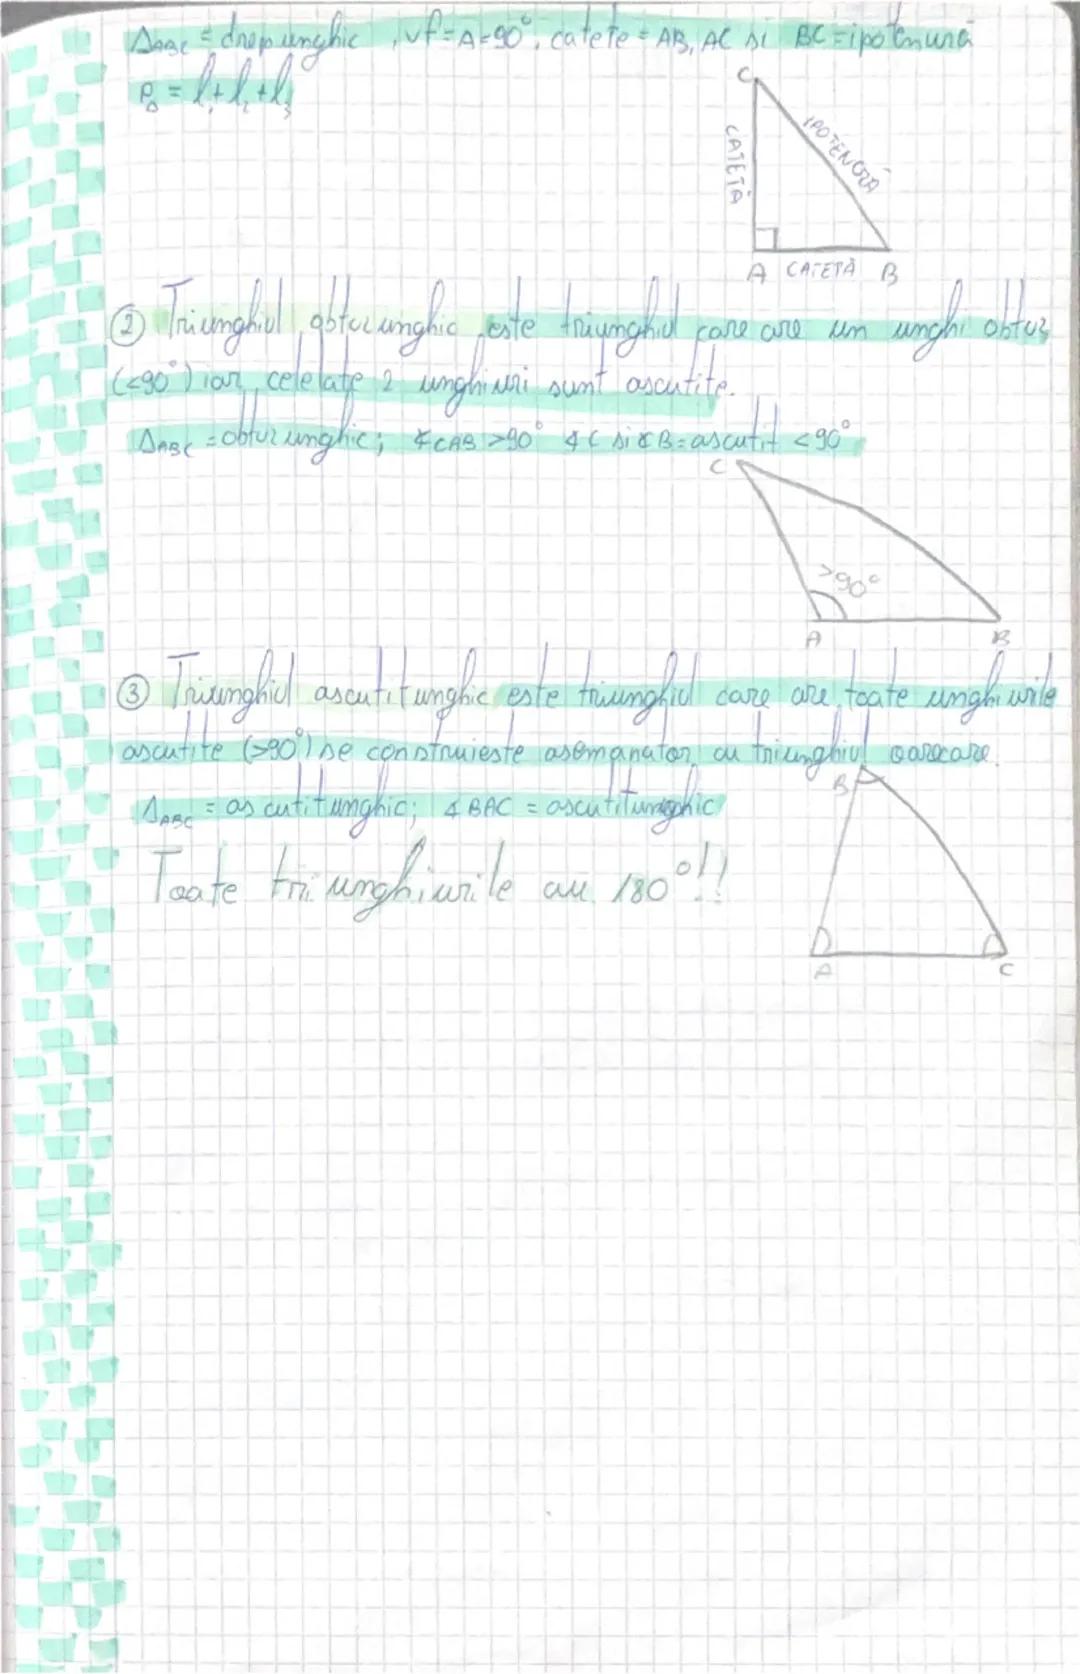 ΔABC = drepunghic, vf = A = 90°, catete = AB, AC si BC = ipotenură
PΔ = l₁ + l₂ + l₃
C
CATETĂ
IPOTENOZĂ
A CATETĂ B
② Triunghiul obtuzunghic este triunghiul care are un unghi obtuz
(<90°) iar celelate 2 unghiuri sunt ascutite.
ΔABC = obtuzunghic; ∢CAB >90° ∢C si ∢B = ascutit <90°
C
>90°
A B
③ Triunghiul ascutitunghic este triunghiul care are toate unghiurile
ascutite (>90°) se construieste asemanator cu triunghiul oarecare.
B
ΔABC = ascutitunghic; ∢BAC = ascutitunghic
Toate triunghiurile au 180°!!
A C